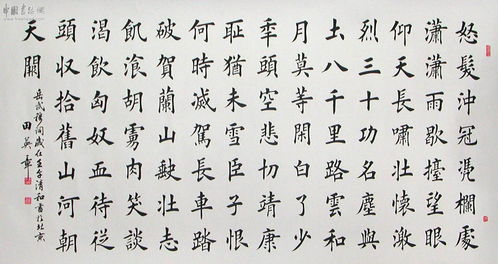 怒髮沖冠憑欄處
瀟瀟雨歇擡望眼
仰天長嘯壯懷激
烈三十功名塵與
土八千里路雲和
月莫等閑白了少
秊頭空悲切靖康
耻猶未雪臣子恨
何時滅駕長車踏
破賀蘭山缺壯志
飢飡胡虜肉笑談
渴飲匈奴血待從
頭收拾舊山河朝
天闕
岳武穆詞歲在壬午清和書於北京
田英章